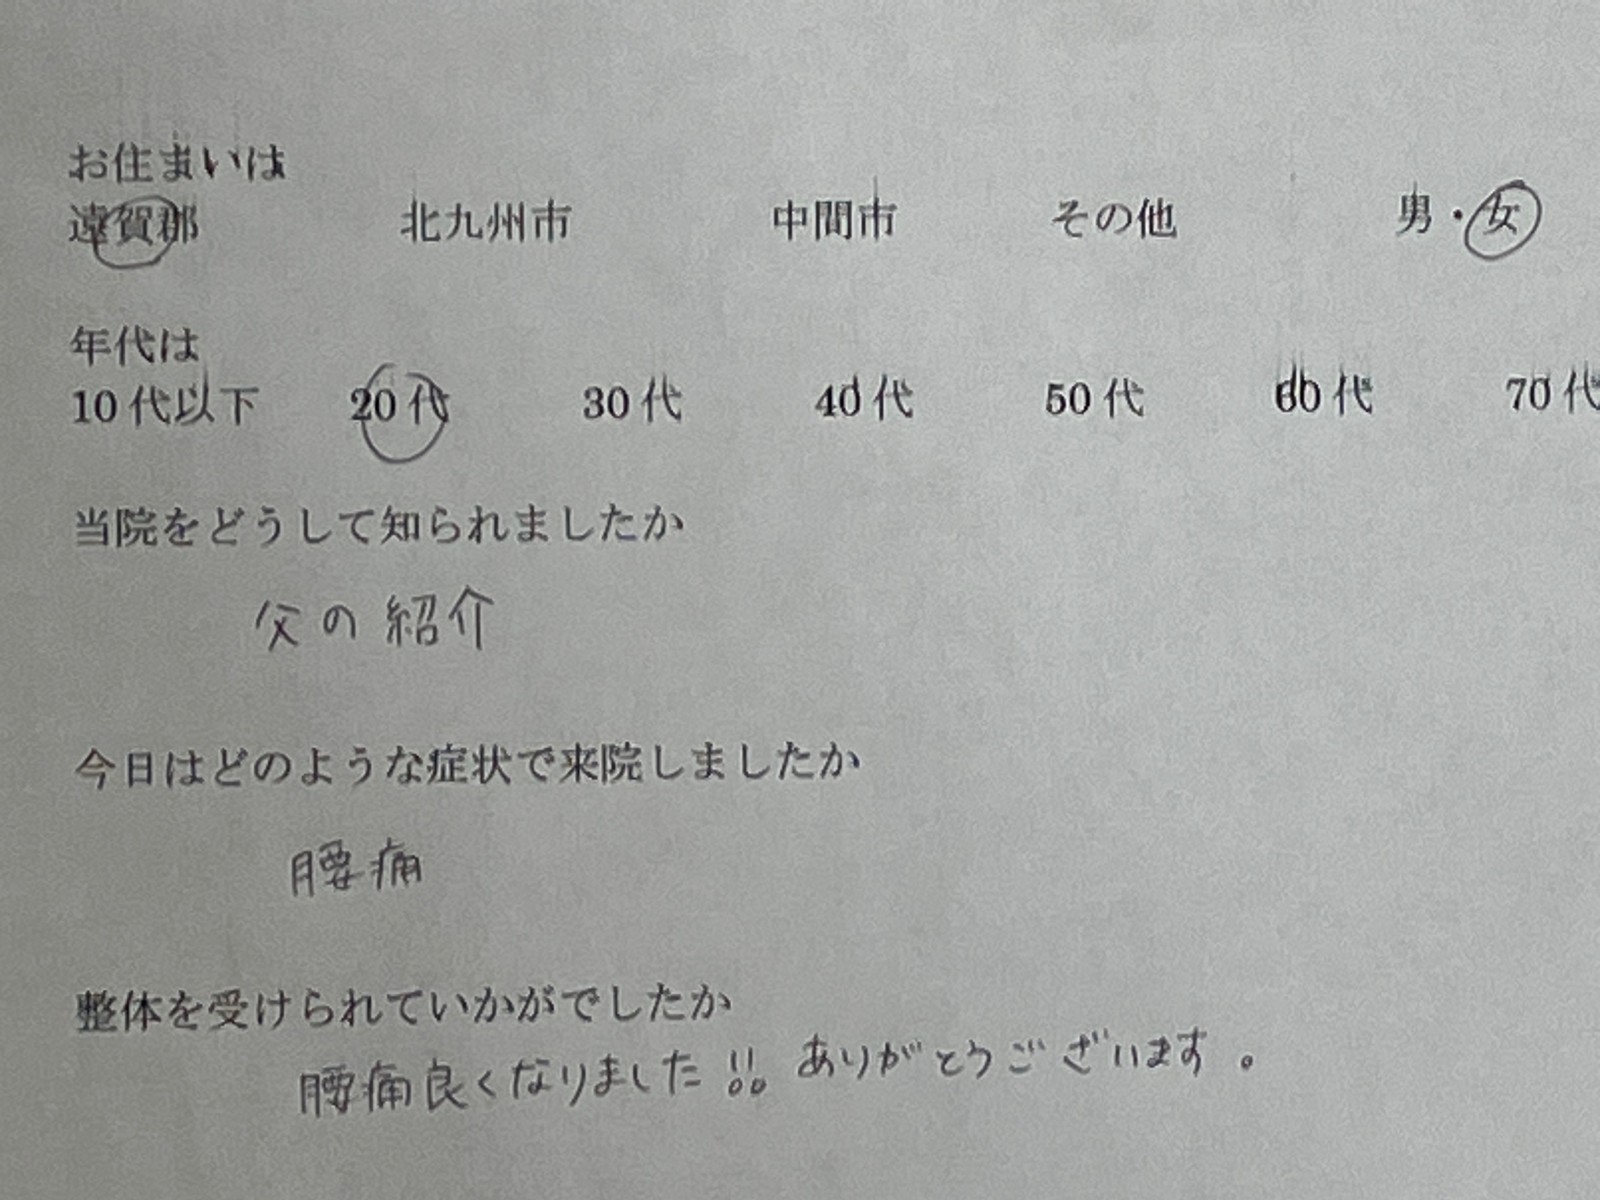 お住まいは
遠賀郡 北九州市 中間市 その他 男・女
年代は
10代以下 20代 30代 40代 50代 60代 70代
当院をどうして知られましたか
父の紹介
今日はどのような症状で来院しましたか
腰痛
整体を受けられていかがでしたか
腰痛良くなりました!! ありがとうございます。